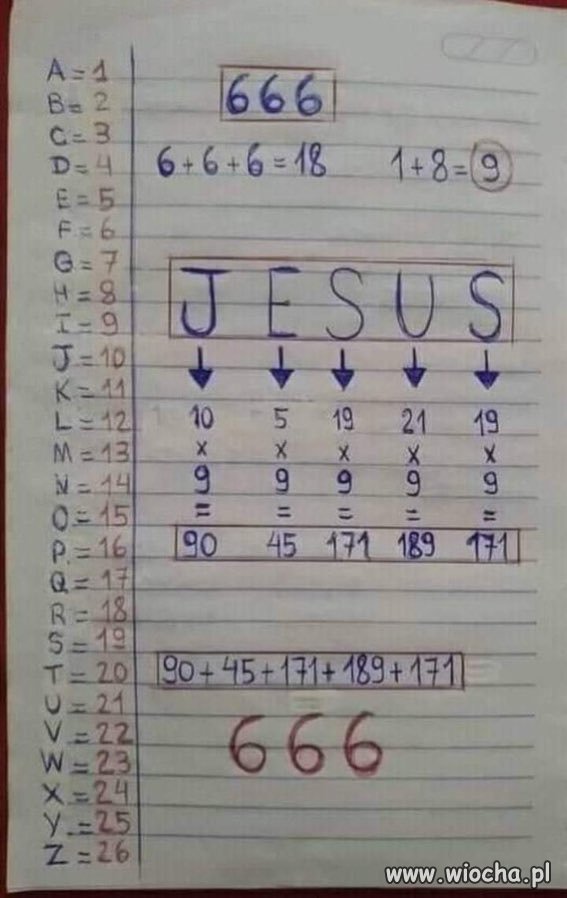 A = 1
B = 2
C = 3
D = 4
E = 5
F = 6
G = 7
H = 8
I = 9
J = 10
K = 11
L = 12
M = 13
N = 14
O = 15
P. = 16
Q = 17
R = 18
S = 19
T = 20
U = 21
V = 22
W = 23
X = 24
Y = 25
Z = 26
666
6+6+6=18 1+8=9
JESUS
↓ ↓ ↓ ↓ ↓
10 5 19 21 19
x x x x x
9 9 9 9 9
= = = = =
90 45 171 189 171
90+45+171+189+171
=
666
www.wiocha.pl